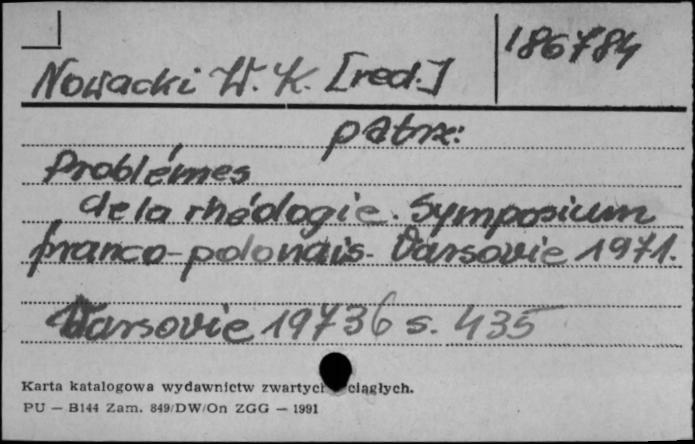 186784
Nowacki W. K. [red.]
patrz:
Problémes
de la rhéologie. Symposium
franco-polonais. Varsovie 1971.
Varsovie 1973 s. 435
Karta katalogowa wydawnictw zwartych ciągłych.
PU — B144 Zam. 849/DW/On ZGG — 1991